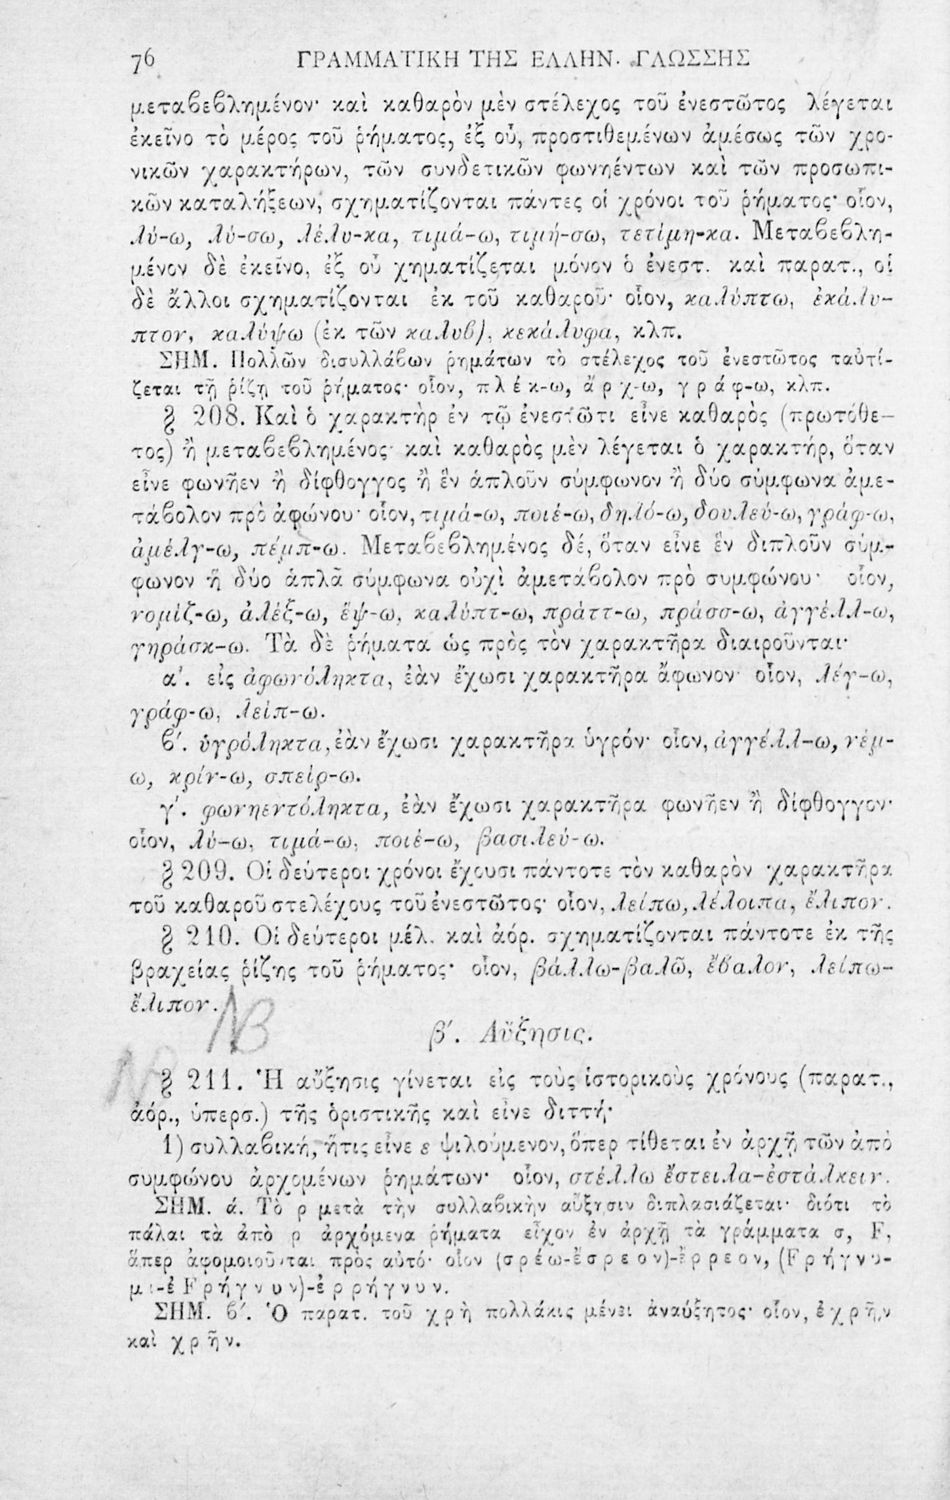 76 ΓΡΑΜΜΑΤΙΚΗ ΤΗΣ ΕΛΛΗΝ. ΓΛΩΣΣΗΣ
μεταβεβλημένον· καὶ καθαρὸν μὲν στέλεχος τοῦ ἐνεστῶτος λέγεται
ἐκεῖνο τὸ μέρος τοῦ ῥήματος, ἐξ οὗ, προστιθεμένων ἀμέσως τῶν χρο-
νικῶν χαρακτήρων, τῶν συνδετικῶν φωνηέντων καὶ τῶν προσωπι-
κῶν καταλήξεων, σχηματίζονται πάντες οἱ χρόνοι τοῦ ῥήματος· οἷον,
λύ-ω, λύ-σω, λέλυ-κα, τιμά-ω, τιμή-σω, τετίμη-κα. Μεταβεβλη-
μένον δὲ ἐκεῖνο, ἐξ οὗ χηματίζεται μόνον ὁ ἐνεστ. καὶ παρατ., οἱ
δὲ ἄλλοι σχηματίζονται ἐκ τοῦ καθαροῦ· οἷον, καλύπτω, ἐκάλυ-
πτον, καλύψω (ἐκ τῶν καλυβ), κεκάλυφα, κλπ.
ΣΗΜ. Πολλῶν δισυλλάβων ῥημάτων τὸ στέλεχος τοῦ ἐνεστῶτος ταὐτί-
ζεται τῇ ῥίζῃ τοῦ ῥήματος· οἷον, πλέκ-ω, ἄρχ-ω, γράφ-ω, κλπ.
§ 208. Καὶ ὁ χαρακτὴρ ἐν τῷ ἐνεστῶτι εἶνε καθαρὸς (πρωτόθε-
τος) ἢ μεταβεβλημένος· καὶ καθαρὸς μὲν λέγεται ὁ χαρακτήρ, ὅταν
εἶνε φωνῆεν ἢ δίφθογγος ἢ ἓν ἁπλοῦν σύμφωνον ἢ δύο σύμφωνα ἀμε-
τάβολον πρὸ ἀφώνου· οἷον, τιμά-ω, ποιέ-ω, δηλό-ω, δουλεύ-ω, γράφ-ω,
ἀμέλγ-ω, πέμπ-ω. Μεταβεβλημένος δέ, ὅταν εἶνε ἓν διπλοῦν σύμ-
φωνον ἢ δύο ἁπλᾶ σύμφωνα οὐχὶ ἀμετάβολον πρὸ συμφώνου· οἷον,
νομίζ-ω, ἀλέξ-ω, ἕψ-ω, καλύπτ-ω, πράττ-ω, πράσσ-ω, ἀγγέλλ-ω,
γηράσκ-ω. Τὰ δὲ ῥήματα ὡς πρὸς τὸν χαρακτῆρα διαιροῦνται·
α'. εἰς ἀφωνόληκτα, ἐὰν ἔχωσι χαρακτῆρα ἄφωνον· οἷον, λέγ-ω,
γράφ-ω, λείπ-ω.
β'. ὑγρόληκτα, ἐὰν ἔχωσι χαρακτῆρα ὑγρόν· οἷον, ἀγγέλλ-ω, νέμ-
ω, κρίν-ω, σπείρ-ω.
γ'. φωνηεντόληκτα, ἐὰν ἔχωσι χαρακτῆρα φωνῆεν ἢ δίφθογγον·
οἷον, λύ-ω, τιμά-ω, ποιέ-ω, βασιλεύ-ω.
§ 209. Οἱ δεύτεροι χρόνοι ἔχουσι πάντοτε τὸν καθαρὸν χαρακτῆρα
τοῦ καθαροῦ στελέχους τοῦ ἐνεστῶτος· οἷον, λείπω, λέλοιπα, ἔλιπον.
§ 210. Οἱ δεύτεροι μέλ. καὶ ἀόρ. σχηματίζονται πάντοτε ἐκ τῆς
βραχείας ῥίζης τοῦ ῥήματος· οἷον, βάλλω-βαλῶ, ἔβαλον, λείπω-
ἔλιπον.
NB
β'. Αὔξησις.
NB
§ 211. Ἡ αὔξησις γίνεται εἰς τοὺς ἱστορικοὺς χρόνους (παρατ.,
ἀόρ., ὑπερσ.) τῆς ὁριστικῆς καὶ εἶνε διττή·
1) συλλαβική, ἥτις εἶνε ε ψιλούμενον, ὅπερ τίθεται ἐν ἀρχῇ τῶν ἀπὸ
συμφώνου ἀρχομένων ῥημάτων· οἷον, στέλλω ἔστειλα-ἐστάλκειν.
ΣΗΜ. ά. Τὸ ρ μετὰ τὴν συλλαβικὴν αὔξησιν διπλασιάζεται· διότι τὸ
πάλαι τὰ ἀπὸ ρ ἀρχόμενα ῥήματα εἶχον ἐν ἀρχῇ τὰ γράμματα σ, F,
ἅπερ ἀφομοιοῦνται πρὸς αὐτό· οἷον (σρέω-ἔσρεον)-ἔρρεον, (Fρήγνυ-
μι-ἐFρήγνυν)-ἐρρήγνυν.
ΣΗΜ. β'. Ὁ παρατ. τοῦ χρὴ πολλάκις μένει ἀναύξητος· οἷον, ἐχρῆν
καὶ χρῆν.